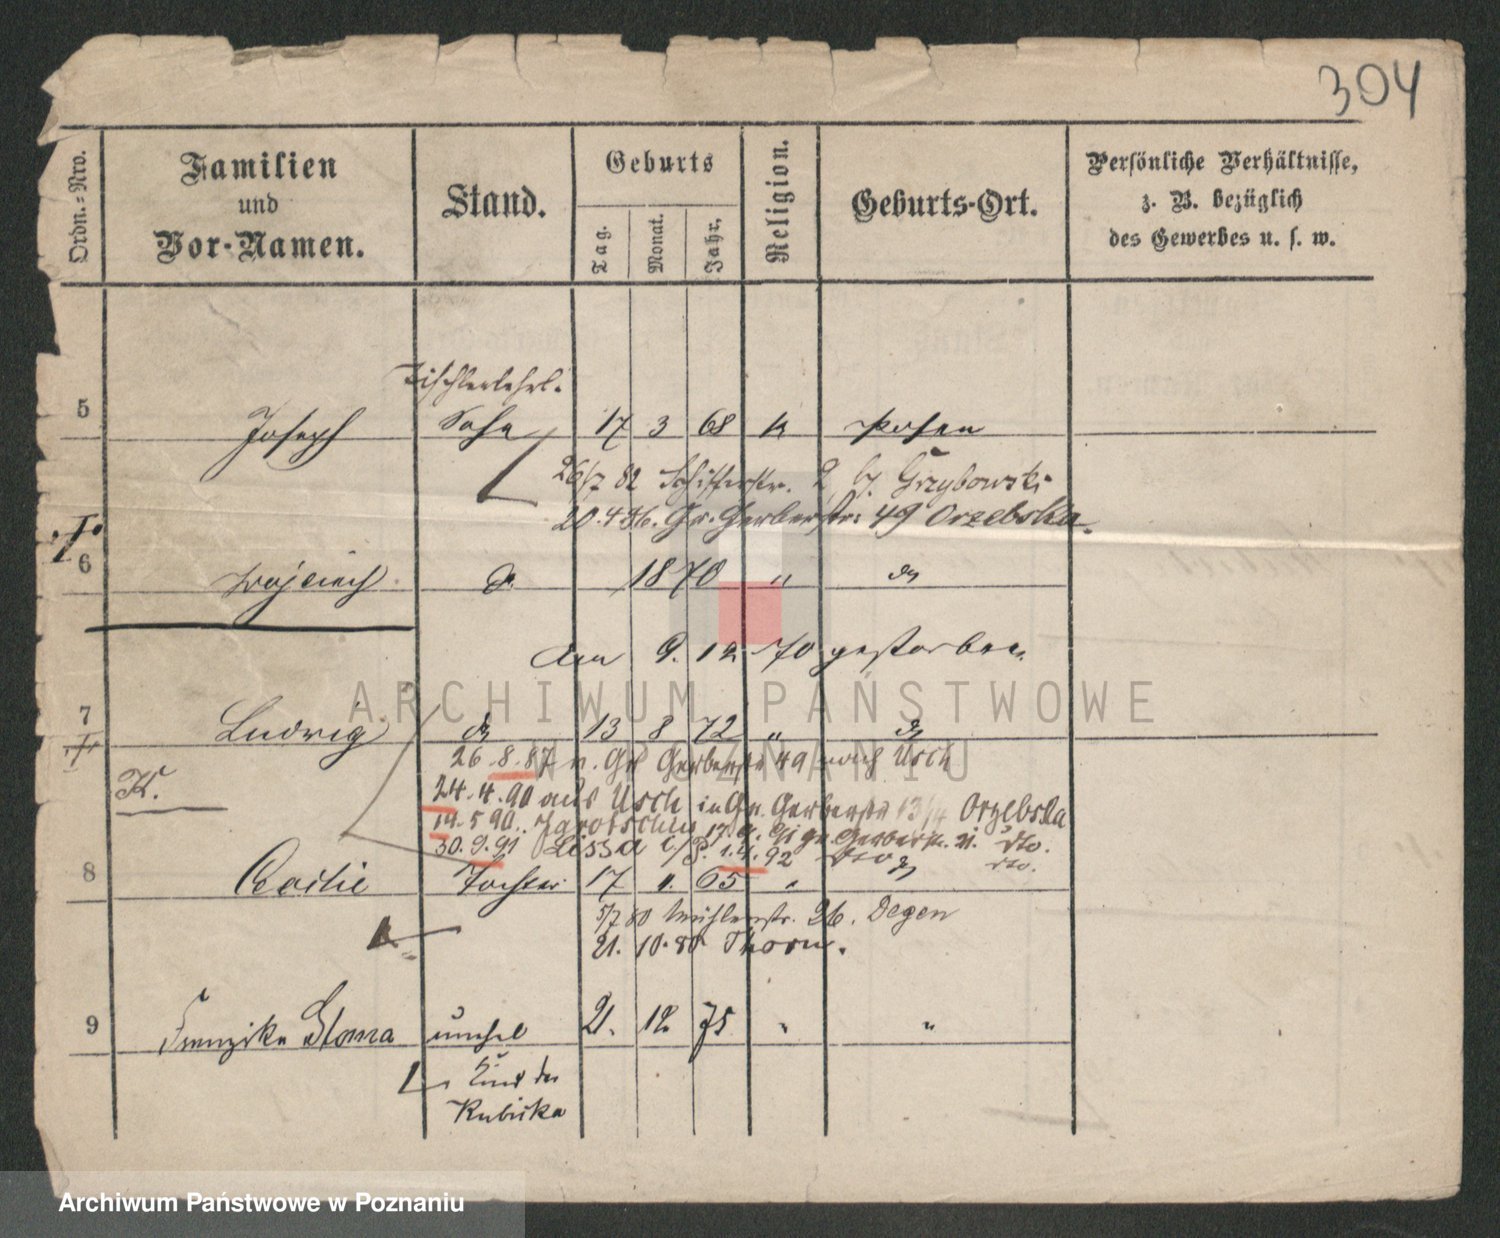 304
Ordn.-Nro.
Familien
und
Vor-Namen.
Stand.
Geburts
Tag.
Monat.
Jahr.
Religion.
Geburts-Ort.
Persönliche Verhältnisse,
z. B. bezüglich
des Gewerbes u. s. w.
Tischlerlehrl.
5 Joseph Sohn 17 3 68 k Posen
26/7 82 Schifferstr. 2 b/ Grzybowski
20.4 86. Gr. Gerberstr. 49 Orzebska.
6 Wojciech 1870 "
Am 9. 12 70 gestorben.
7 Ludwig 13 8 72 "
26.8.87 v. Gr Gerberstr 49 nach Usch
K.
24.4.90 aus Usch in Gr. Gerberstr 13/14 Orzebska
14.5 90.
30.9.91 Lissa i/P. 1.4.92 dto.
8 Cacilie Tochter 17 65 "
5/7 80 Mühlenstr. 26. Degen
21. 10. 80 Thorn.
9 Franziska unehel 21. 12 75 " "
Kind der
Kubiska
ARCHIWUM PAŃSTWOWE
W POZNANIU
Archiwum Państwowe w Poznaniu